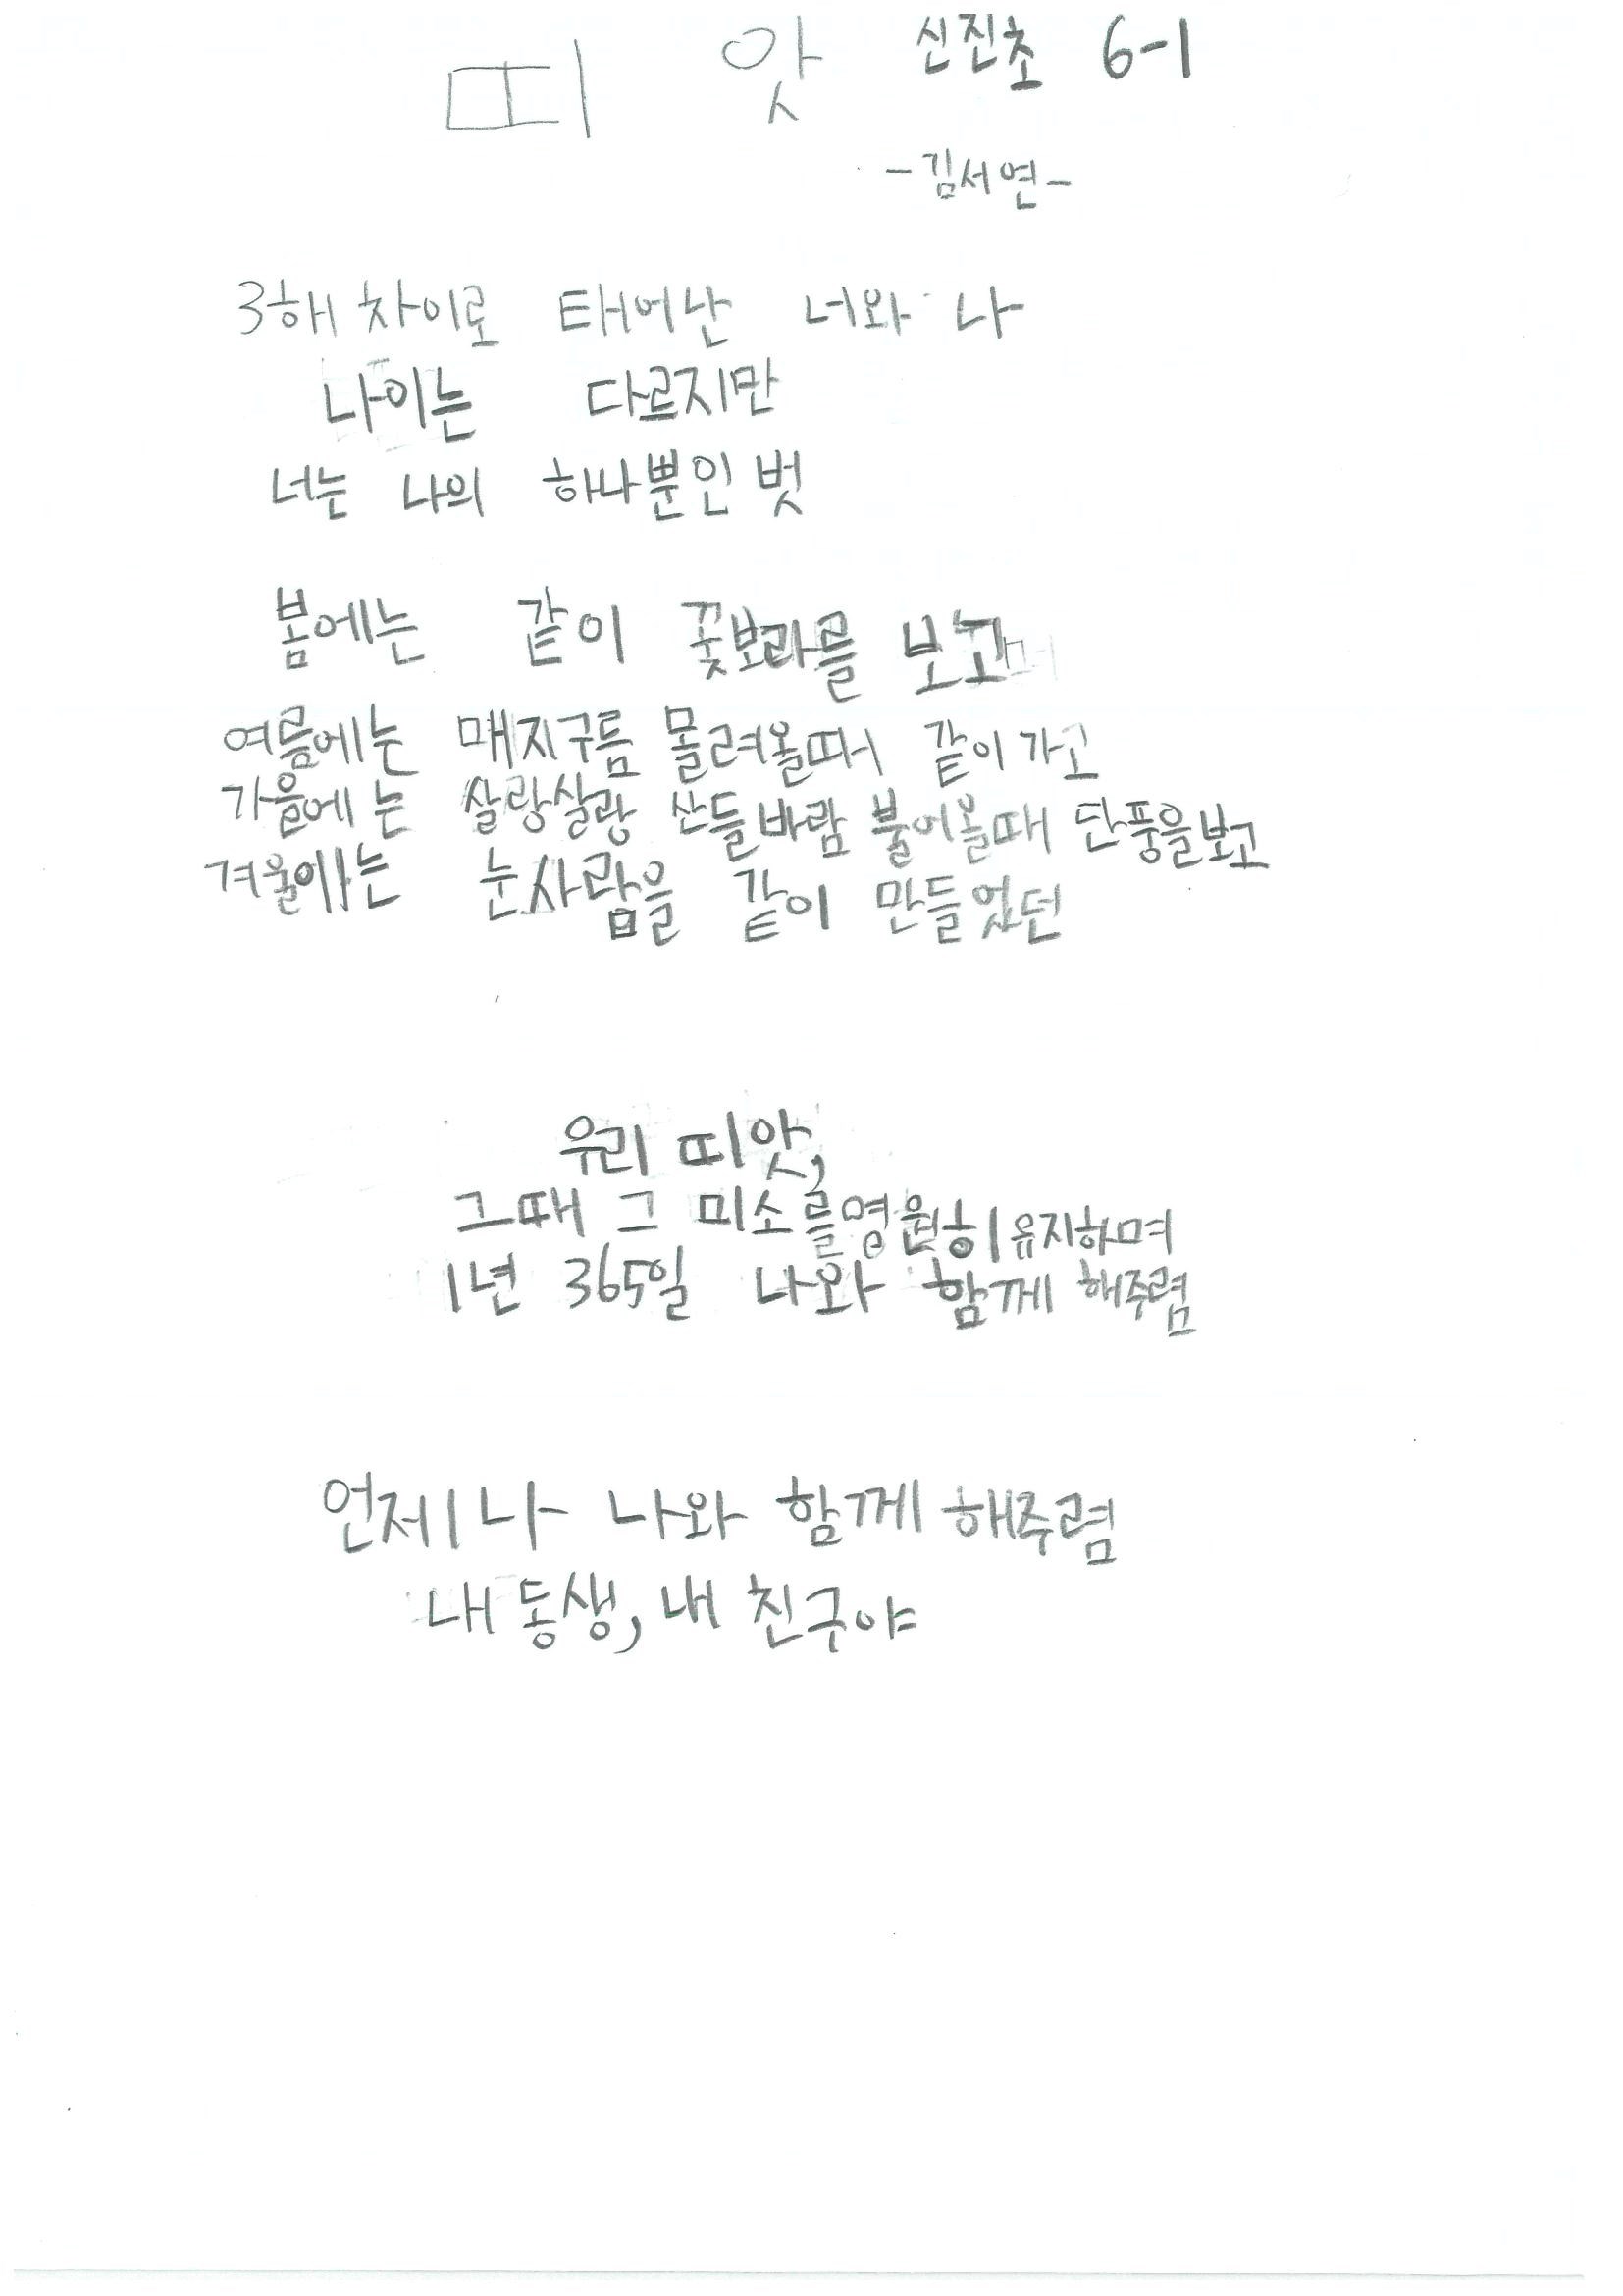 띠앗 신진초 6-1
-김서연-
3해 차이로 태어난 너와 나
나이는 다르지만
너는 나의 하나뿐인 벗
봄에는 같이 꽃보라를 보고
여름에는 매지구름 몰려올때 같이 가고
가을에는 살랑살랑 산들바람 불어올때 단풍을보고
겨울에는 눈사람을 같이 만들었던
우리 띠앗,
그때 그 미소를영원히유지하며
1년 365일 나와 함께 해주렴
언제나 나와 함께 해주렴
내 동생, 내 친구야